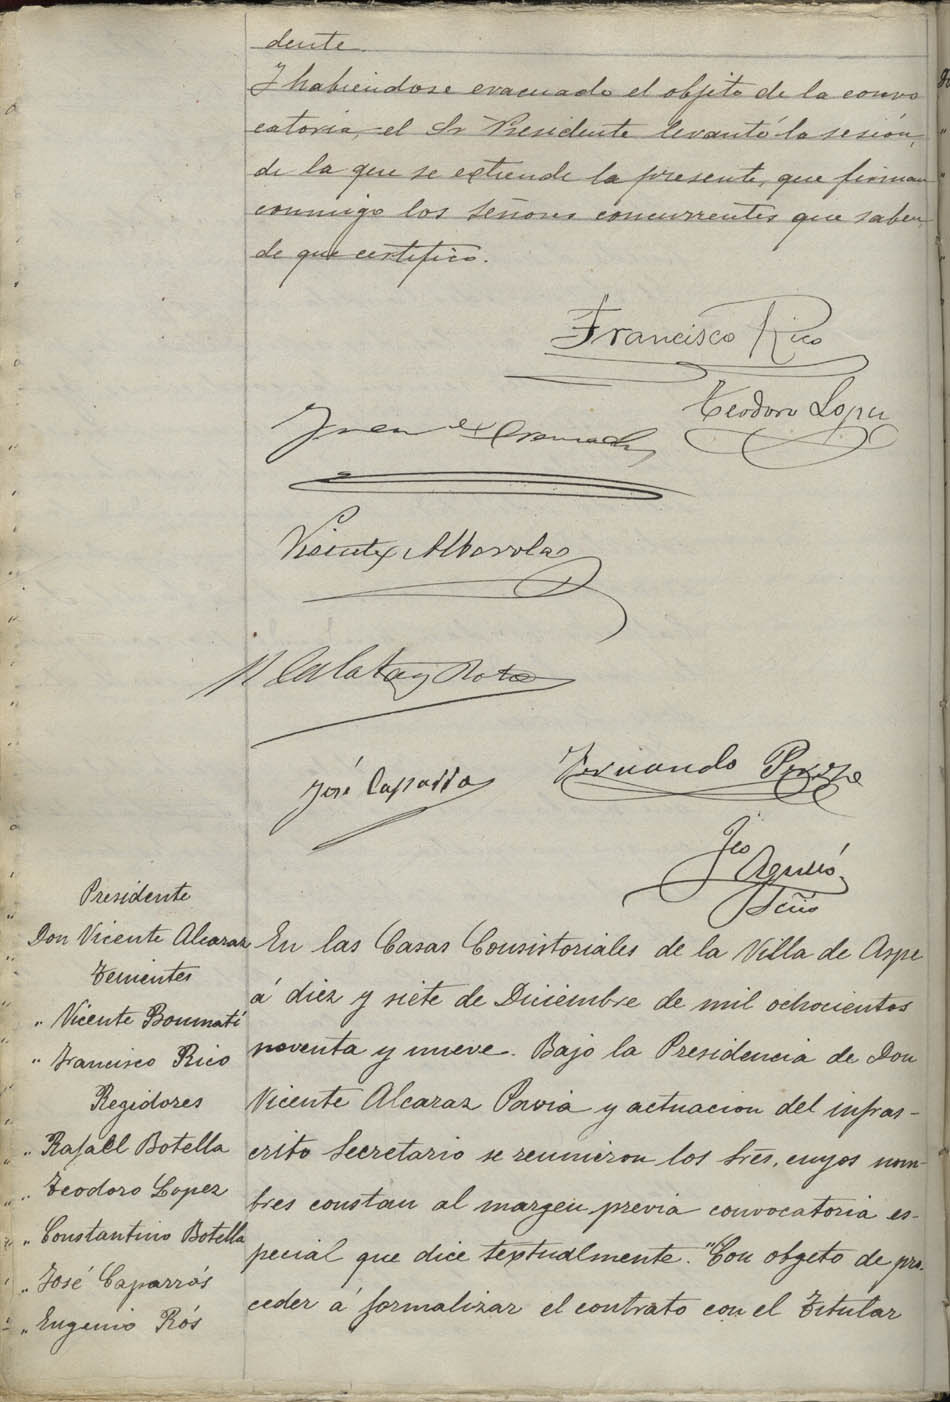 dente
Y habiendose evacuado el objeto de la convo
catoria, el Sr Presidente levantó la sesión,
de la que se extiende la presente, que firman
conmigo los Señores concurrentes que saben
de que certifico.
Francisco Rico
Teodoro Lopez
Juan
Vicente
Calatayud
José Caparrós
Fernando
Fco
Srio
Presidente
Don Vicente Alcaraz
Tenientes
" Vicente Boumatí
" Francisco Rico
Regidores
" Rafael Botella
" Teodoro Lopez
" Constantino Botella
" José Caparrós
" Eugenio Rós
En las Casas Consistoriales de la Villa de Aspe
á diez y siete de Diciembre de mil ochocientos
noventa y nueve. Bajo la Presidencia de Don
Vicente Alcaraz Pavia y actuacion del infras-
crito Secretario se reunieron los Sres, cuyos nom-
bres constan al margen previa convocatoria es-
pecial que dice textualmente. "Con objeto de pro-
ceder á formalizar el contrato con el Titular